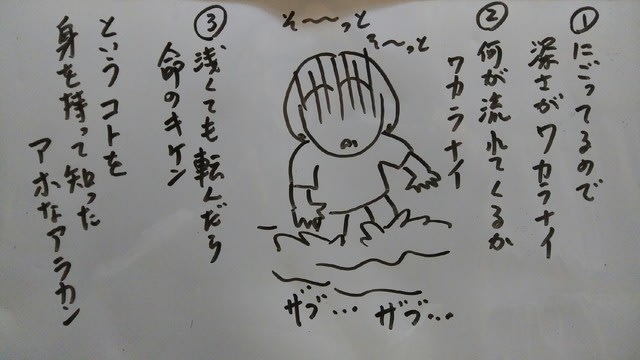 ①にごってるので
深さがワカラナイ
②何が流れてくるか
ワカラナイ
そ〜〜っと
そ〜っと
③浅くても転んだら
命のキケン
というコトを
身を持って知った
アホなアラカン
ザブ…
ザブ…